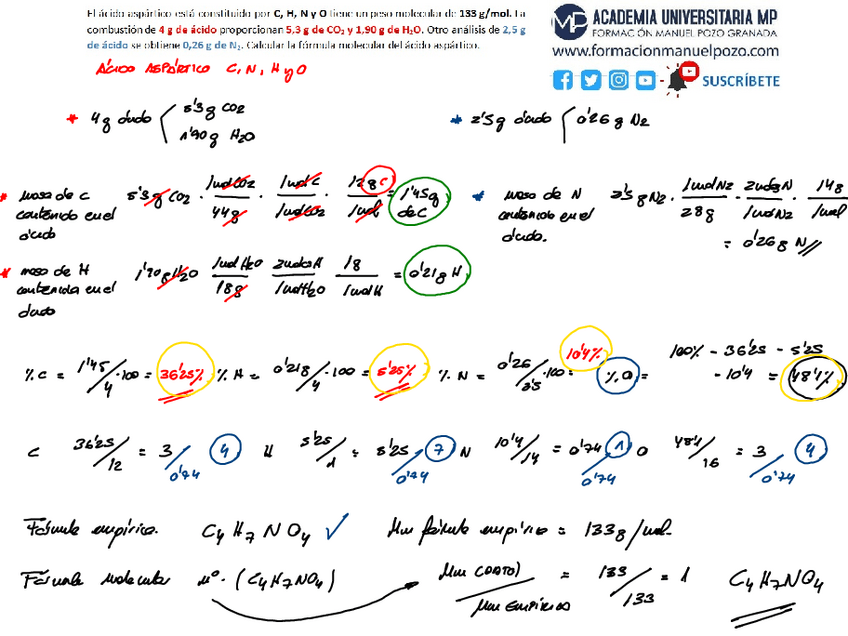 El ácido aspártico está constituido por C, H, N y O tiene un peso molecular de 133 g/mol. La
combustión de 4 g de ácido proporcionan 5,3 g de CO₂ y 1,90 g de H₂O. Otro análisis de 2,5 g
de ácido se obtiene 0,26 g de N₂. Calcular la fórmula molecular del ácido aspártico.
ACADEMIA UNIVERSITARIA MP
FORMACIÓN MANUEL POZO GRANADA
www.formacionmanuelpozo.com
SUSCRÍBETE
ÁCIDO ASPÁRTICO C, N, H y O
* 4g ácido { 5'3g CO2
1'90g H2O
* 2'5g ácido { 0'26g N2
* masa de C contenido en el ácido 5'3g CO2 · 1mol CO2/44g · 1mol C/1mol CO2 · 12g C/1mol = 1'45g de C
* masa de N contenido en el ácido. g N2 · 1mol N2/28g · 2mol N/1mol N2 · 14g/1mol
= 0'26g N
* masa de H contenida en el ácido 1'90g H2O 1mol H2O/18g 2mol H/1mol H2O 18/1mol H = 0'21g H
% C = 1'45/4 · 100 = 36'25% % H = 0'218/4 · 100 = 5'25% % N = 0'26/2'5 · 100 = 10'4% % O = 100% - 36'25 - 5'25
- 10'4 = 48'1%
C 36'25/12 = 3/0'74 4 H 5'25/1 = 5'25/0'74 7 N 10'4/14 = 0'74/0'74 1 O 48'1/16 = 3/0'74 4
Fórmula empírica. C4 H7 N O4 ✓ Mm fórmula empírica = 133g/mol.
Fórmula molecular nº · (C4H7NO4) Mm (DATO)/Mm EMPÍRICA = 133/133 = 1 C4H7NO4